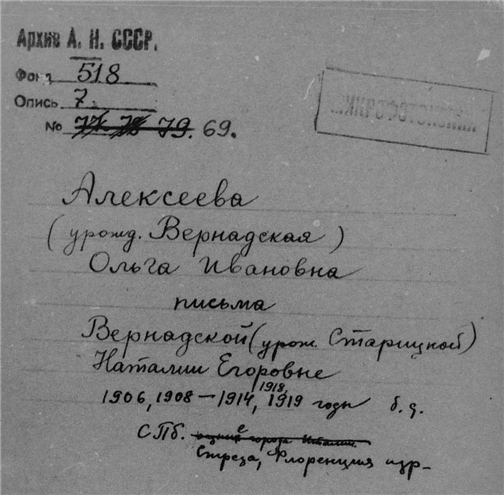 Архив А. Н. СССР.
Фонд 518
Опись 7
No 77 78 79 69.
Алексеева
(урожд. Вернадская)
Ольга Ивановна
письма
Вернадской (урож. Старицкой)
Наталии Егоровне
1918,
1906, 1908 — 1914, 1919 годы б. д.
СПб.
Стреза, Флоренция и др-